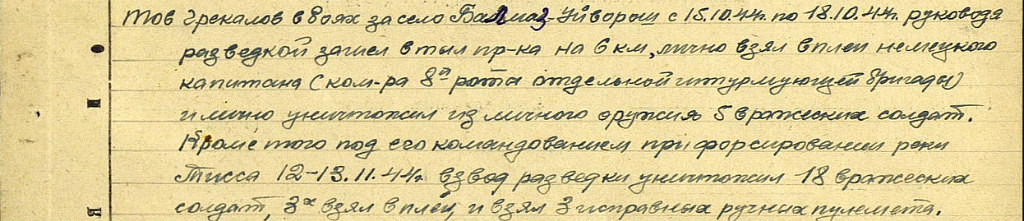 Тов Грекалов в боях за село Балмаз-Уйворош с 15.10.44г. по 18.10.44г. руководя
разведкой зашел в тыл пр-ка на 6 км, лично взял в плен немецкого
капитана (ком-ра 8й роты отдельной штурмующей бригады)
и лично уничтожил из личного оружия 5 вражеских солдат.
Кроме того под его командованием при форсировании реки
Тисса 12-13.11.44г. взвод разведки уничтожил 18 вражеских
солдат, 3х взял в плен, и взял 3 исправных ручных пулемета.